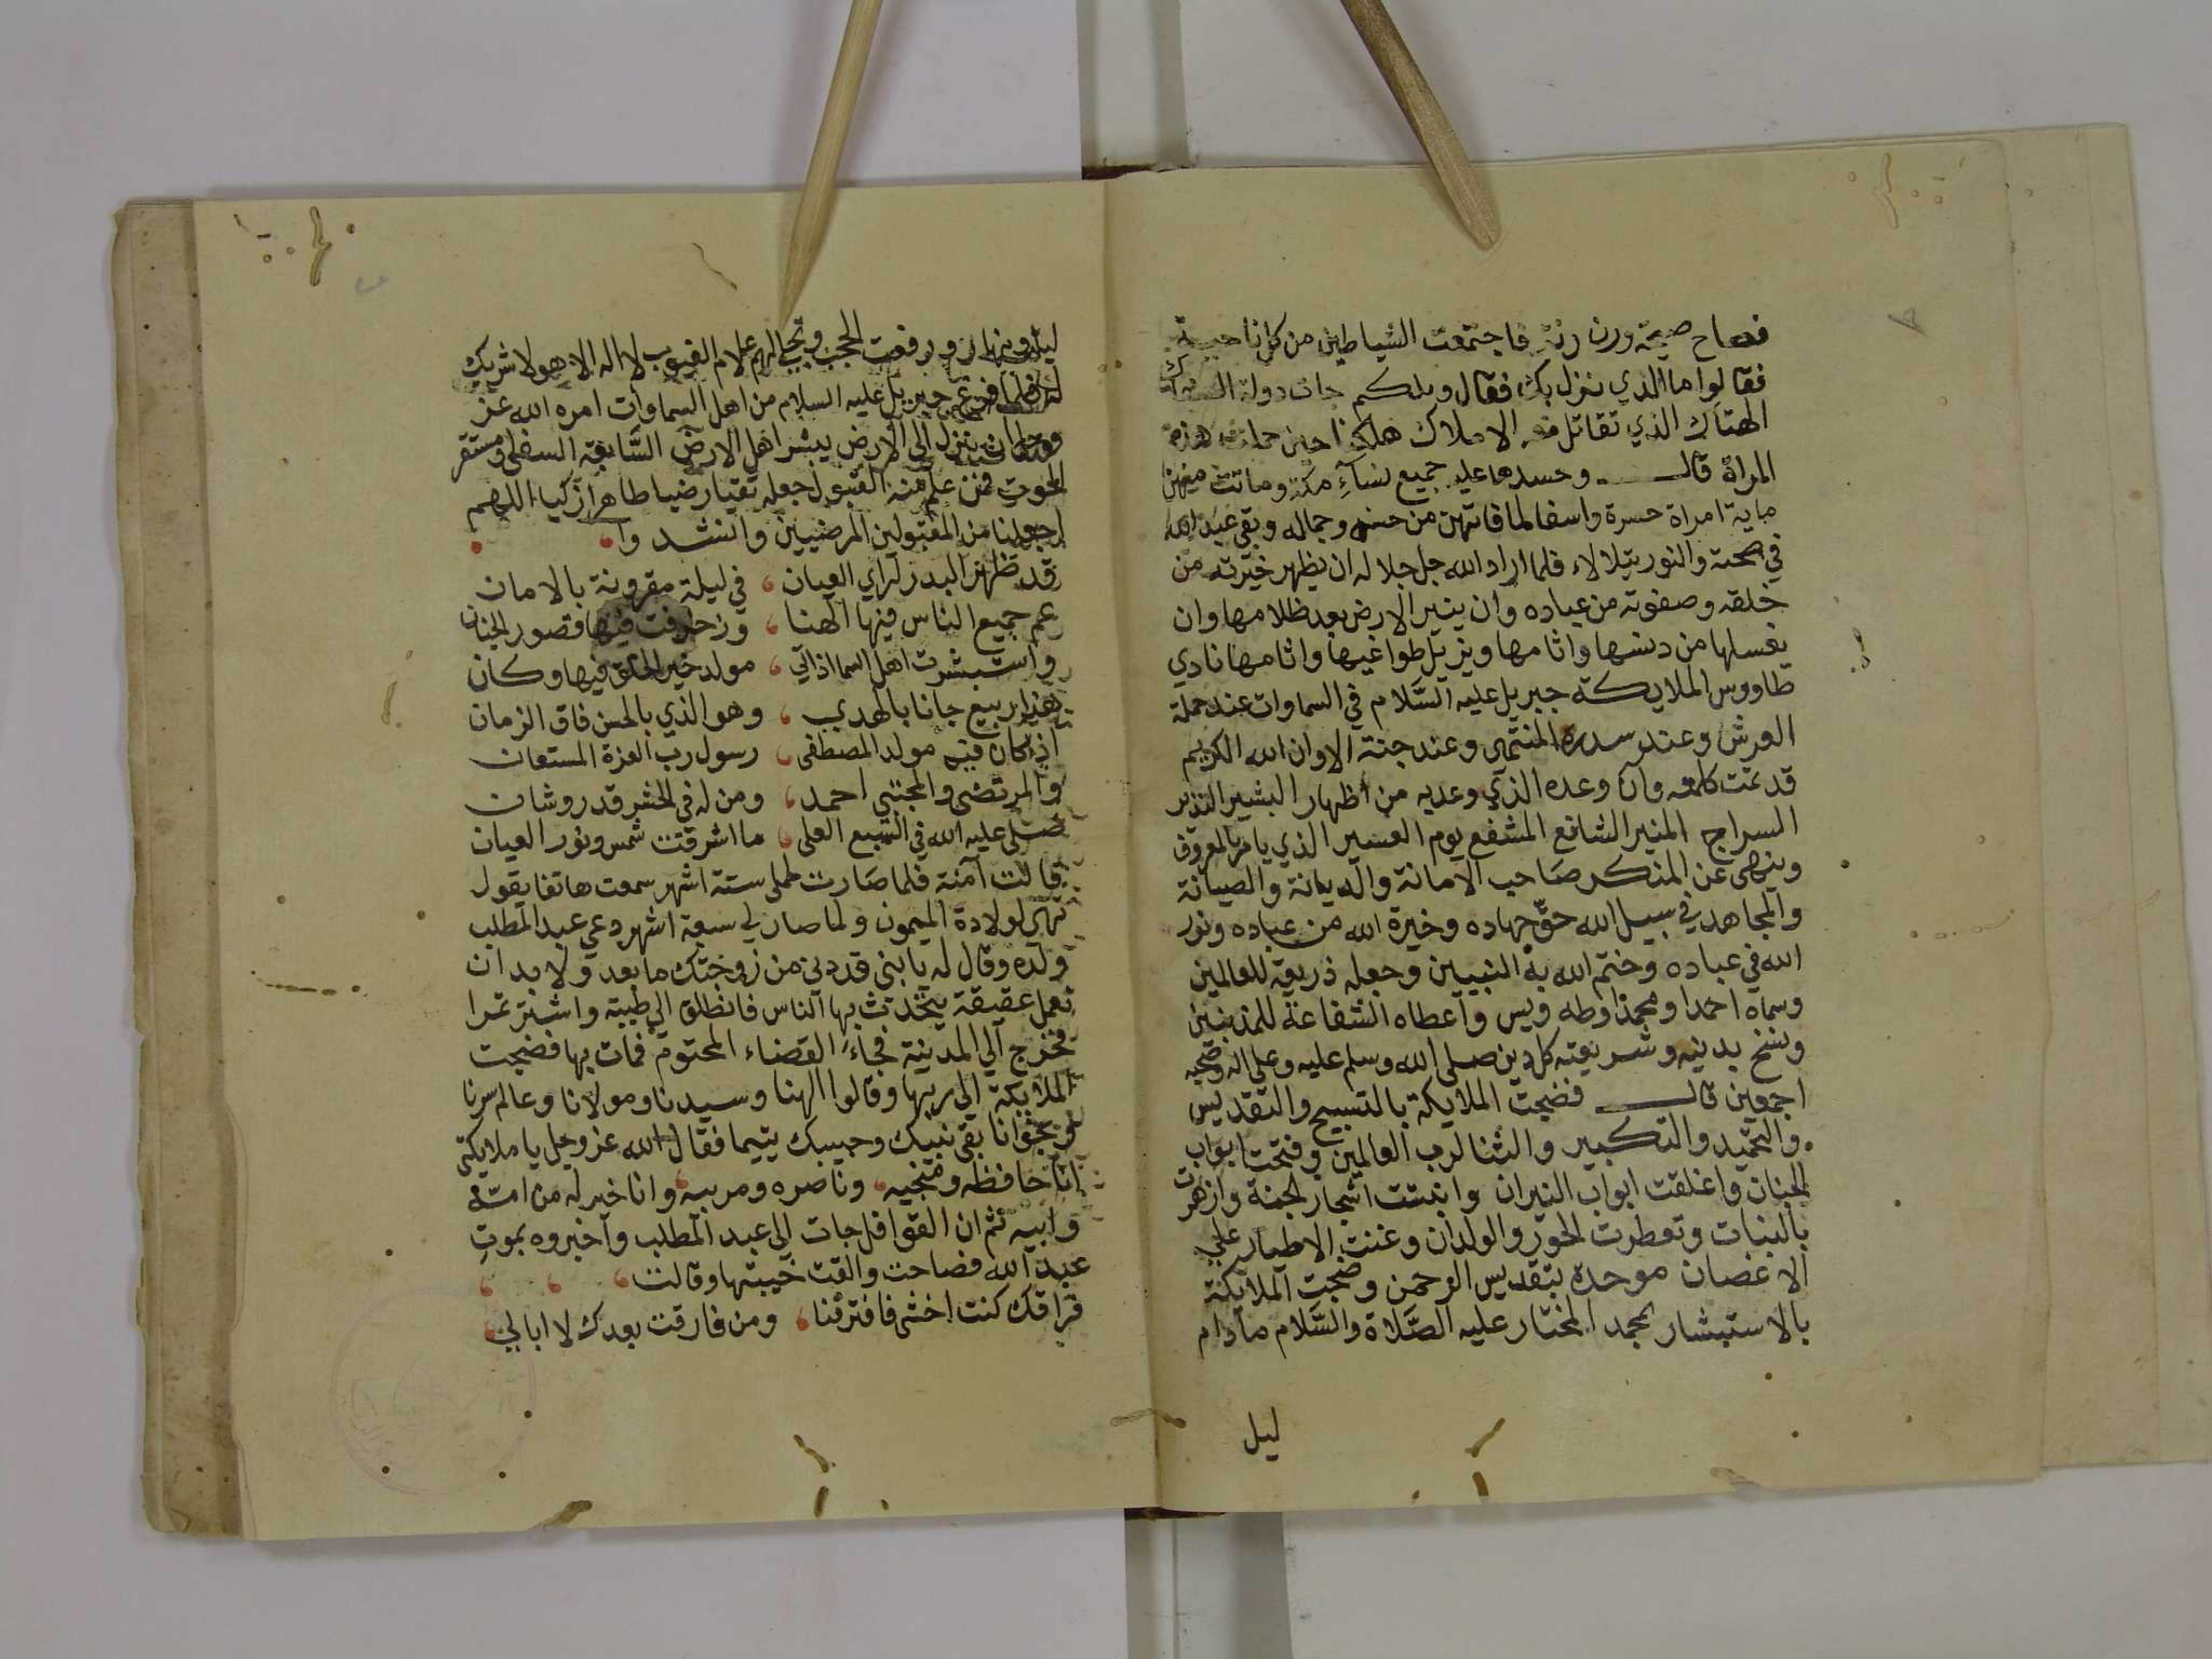 فصاح صيحة ورن رنة فاجتمعت الشياطين من كل ناحية
فقالوا ما الذي نزل بك فقال ويلكم جات دولة السفاك
الهتاك الذي تقاتل معه الاملاك هلكنا حين حملت هذه
المراة قال وحسدها عليه جميع نسآءِ مكة وماتت منهن
ماية امراة حسرة واسفا لما فاتهن من حسنه وجماله وبقي عبد الله
في صحته والنور يتلالاء فلما اراد الله جل جلاله ان يظهر خيرته من
خلقه وصفوته من عباده وان ينير الارض بعد ظلامها وان
يغسلها من دنسها واثامها ويزيل طواغيها واثامها نادي
طاووس الملايكة جبريل عليه السَّلام في السماوات عند حملة
العرش وعند سدرة المنتهى وعند جنة الاوان الله الكريم
قد تمت كلمته وان وعده الذي وعد به من اظهار البشير النذير
السراج المنير الشافع المشفع يوم العسير الذي يامر بالمعروف
وينهى عن المنكر صَاحب الامانة والديانة والصيانة
والمجاهد في سبيل الله حقّ جهاده وخيرة الله من عباده ونور
الله في عباده وختم الله به النبيين وجعله ذريعة للعالمين
وسماه احمدا ومحمدا وطه ويس واعطاه الشفاعة للمذنبين
ونسخ بدينه وشريعته كل دين صلى الله وسلم عليه وعلى اله وصحبه
اجمعين قال فضجت الملايكة بالتسبيح والتقديس
والتحميد والتكبير والثنا لرب العالمين وفتحت ابواب
الجنان واغلقت ابواب النيران وانبتت اشجار الجنة وازهرت
بالنبات وتعطرت الحور والولدان وغنت الاطيار علي
الاغصان موحدة بتقديس الرحمن وضجت الملايكة
بالاستبشار بمحمد المختار عليه الصَّلاة والسَّلام ما دام
ليل
ليل ونهار ورفعت الحجب وتجلى لهم علام الغيوب لا اله الا هو لا شريك
له فلما فرغ جبريل عليه السلام من اهل السماوات امره الله عز
وجل ان ينزل الى الارض يبشر اهل الارض السَّابعة السفلى ومستقر
الحوت فمن علم منه القبول جعله تقيا رضيا طاهرا زكيا اللهم
اجعلنا من المقبولين المرضيين وانشدوا
قد ظهر البدر لراي العيان في ليلة مقرونة بالامان
عم جميع الناس فيها الهنا وزخرفت فيها قصور الجنان
واستبشرت اهل السما اذ اتي مولد خير الخلق فيها وكان
هذا ربيع جانا بالهدي وهو الذي بالحسن فاق الزمان
اذ كان فيه مولد المصطفى رسول رب العزة المستعان
والمرتضى والمجتبى احمد ومن له في الحشر قدر وشان
صلى عليه الله في السبع العلى ما اشرقت شمس ونور العيان
قالت آمنة فلما صَارت لحملي ستة اشهر سمعت هاتفا يقول
تهيى لولادة الميمون ولما صار لي سبعة اشهر دعي عبد المطلب
ولده وقال له يا بني قد دنى من زوجتك ما بعد ولا بد ان
نعمل عقيقة يتحدث بها الناس فانطلق الي طيبة واشتر تمرا
فخرج الي المدينة فجاءَ القضاء المحتوم فمات بها فضجت
الملايكة الى ربها وقالوا الهنا وسيدنا ومولانا وعالم سرنا
ونجوانا بقي نبيك وحبيبك يتيما فقال الله عز وجل يا ملايكتي
انا حافظه ومنجيه وناصره ومربيه وانا خير له من امه
وابيه ثم ان القوافل جات الى عبد المطلب واخبروه بموتِ
عبد الله فصاحت والقت خيبتها وقالت
فراقك كنت اخشى فافترقنا ومن فارقت بعدك لا ابالي